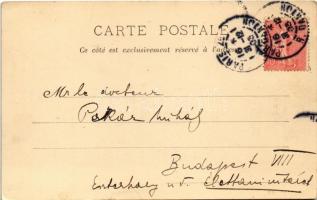 CARTE POSTALE
Ce côté est exclusivement réservé à l'adresse
Mr le docteur
Pekár Mihály
Budapest VIII
Eszterházy út. Élettani intézet